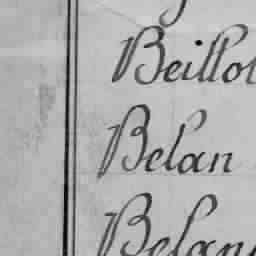 Beillot
Belan
Belan